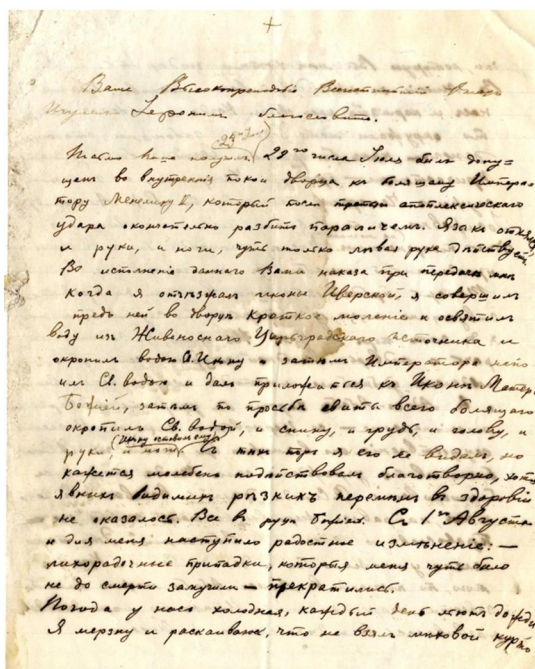 Ваше Высокопреподобіе Всечестнѣйшій Отецъ
Игуменъ Іеронимъ благословите.
Письмо Ваше получилъ 29го числа Іюля былъ допу=
щенъ во внутренніе покои дворца къ болящему Импера
тору Менелику II, который послѣ третьяго апоплексическаго
удара окончательно разбитъ параличемъ. Языкъ
и руки, и ноги, чуть только лѣвая рука дѣйствуетъ.
Во исполненіе даннаго Вами наказа при передачѣ мнѣ
когда я отъѣзжалъ иконы Иверской, я совершилъ
предъ ней во дворцѣ краткое моленіе и освятилъ
воду изъ Живоноснаго Цареградскаго источника и
окропилъ водою и затѣмъ Императора
Св. водою и далъ приложиться къ Иконѣ Матери
Божіей, затѣмъ по просьбѣ свиты всего болящаго
окропилъ Св. водой, и спину, и грудь, и голову, и
руки, и ноги. Съ тѣхъ поръ я его не видалъ, но
кажется молебенъ подѣйствовалъ благотворно, хотя
явныхъ видимыхъ рѣзкихъ перемѣнъ въ здоровіи
не оказалось. Все въ руцѣ Божіей. Съ 1го Августа
и для меня наступило радостное измѣненіе: —
лихорадочные припадки, которые меня чуть было
не до смерти замучили — прекратились.
Погода у насъ холодная, каждый день льютъ дожди
Я мерзну и раскаиваюсь, что не взялъ мѣховой